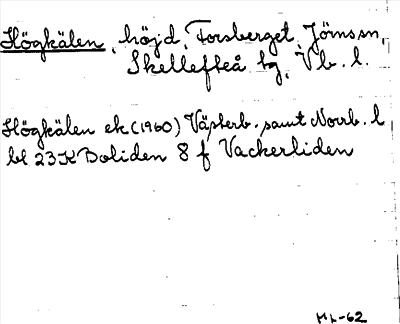 Högkälen, höjd, Forsberget, Jörns sn,
Skellefteå tg, Vb. l.
Högkälen ek (1960) Västerb. samt Norrb. l
bl 23K Boliden 8 f Vackerliden